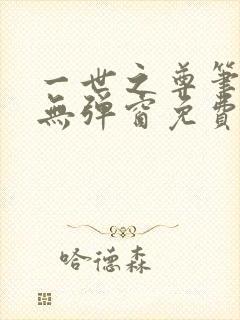 一世之尊筆
無彈窗免費
哈德森